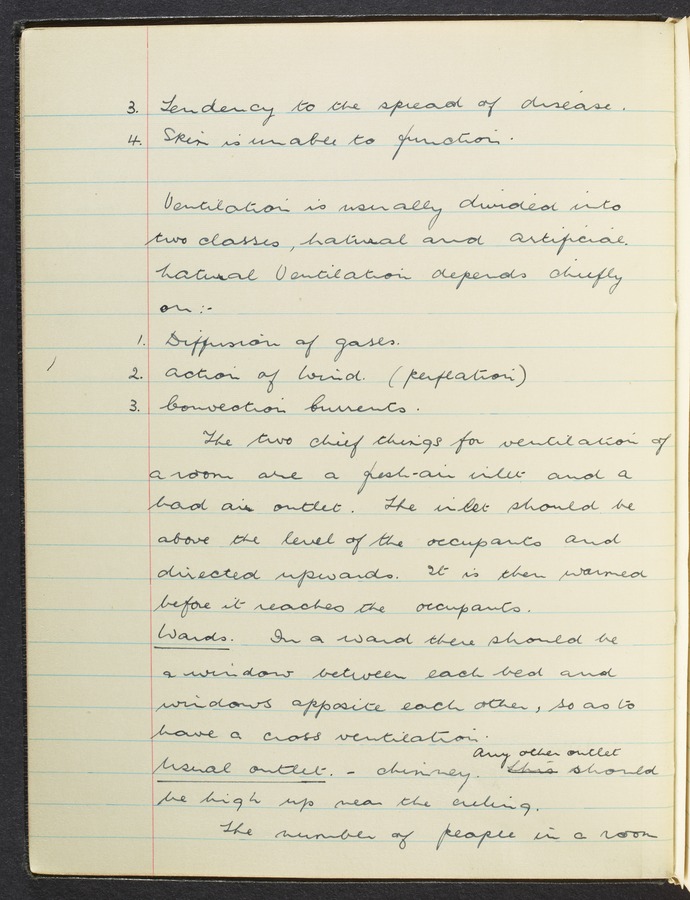 3. Tendency to the spread of disease.
4. Skin is unable to function.
Ventilation is usually divided into
two classes, natural and artificial.
Natural Ventilation depends chiefly
on:-
1. Diffusion of gases.
2. Action of Wind. (perflation)
3. Convection Currents.
The two chief things for ventilation of
a room are a fresh-air inlet and a
bad air outlet. The inlet should be
above the level of the occupants and
directed upwards. It is then warmed
before it reaches the occupants.
Wards. In a ward there should be
a window between each bed and
windows opposite each other, so as to
have a cross ventilation.
Any other outlet
Usual outlet. - chimney. This should
be high up near the ceiling.
The number of people in a room